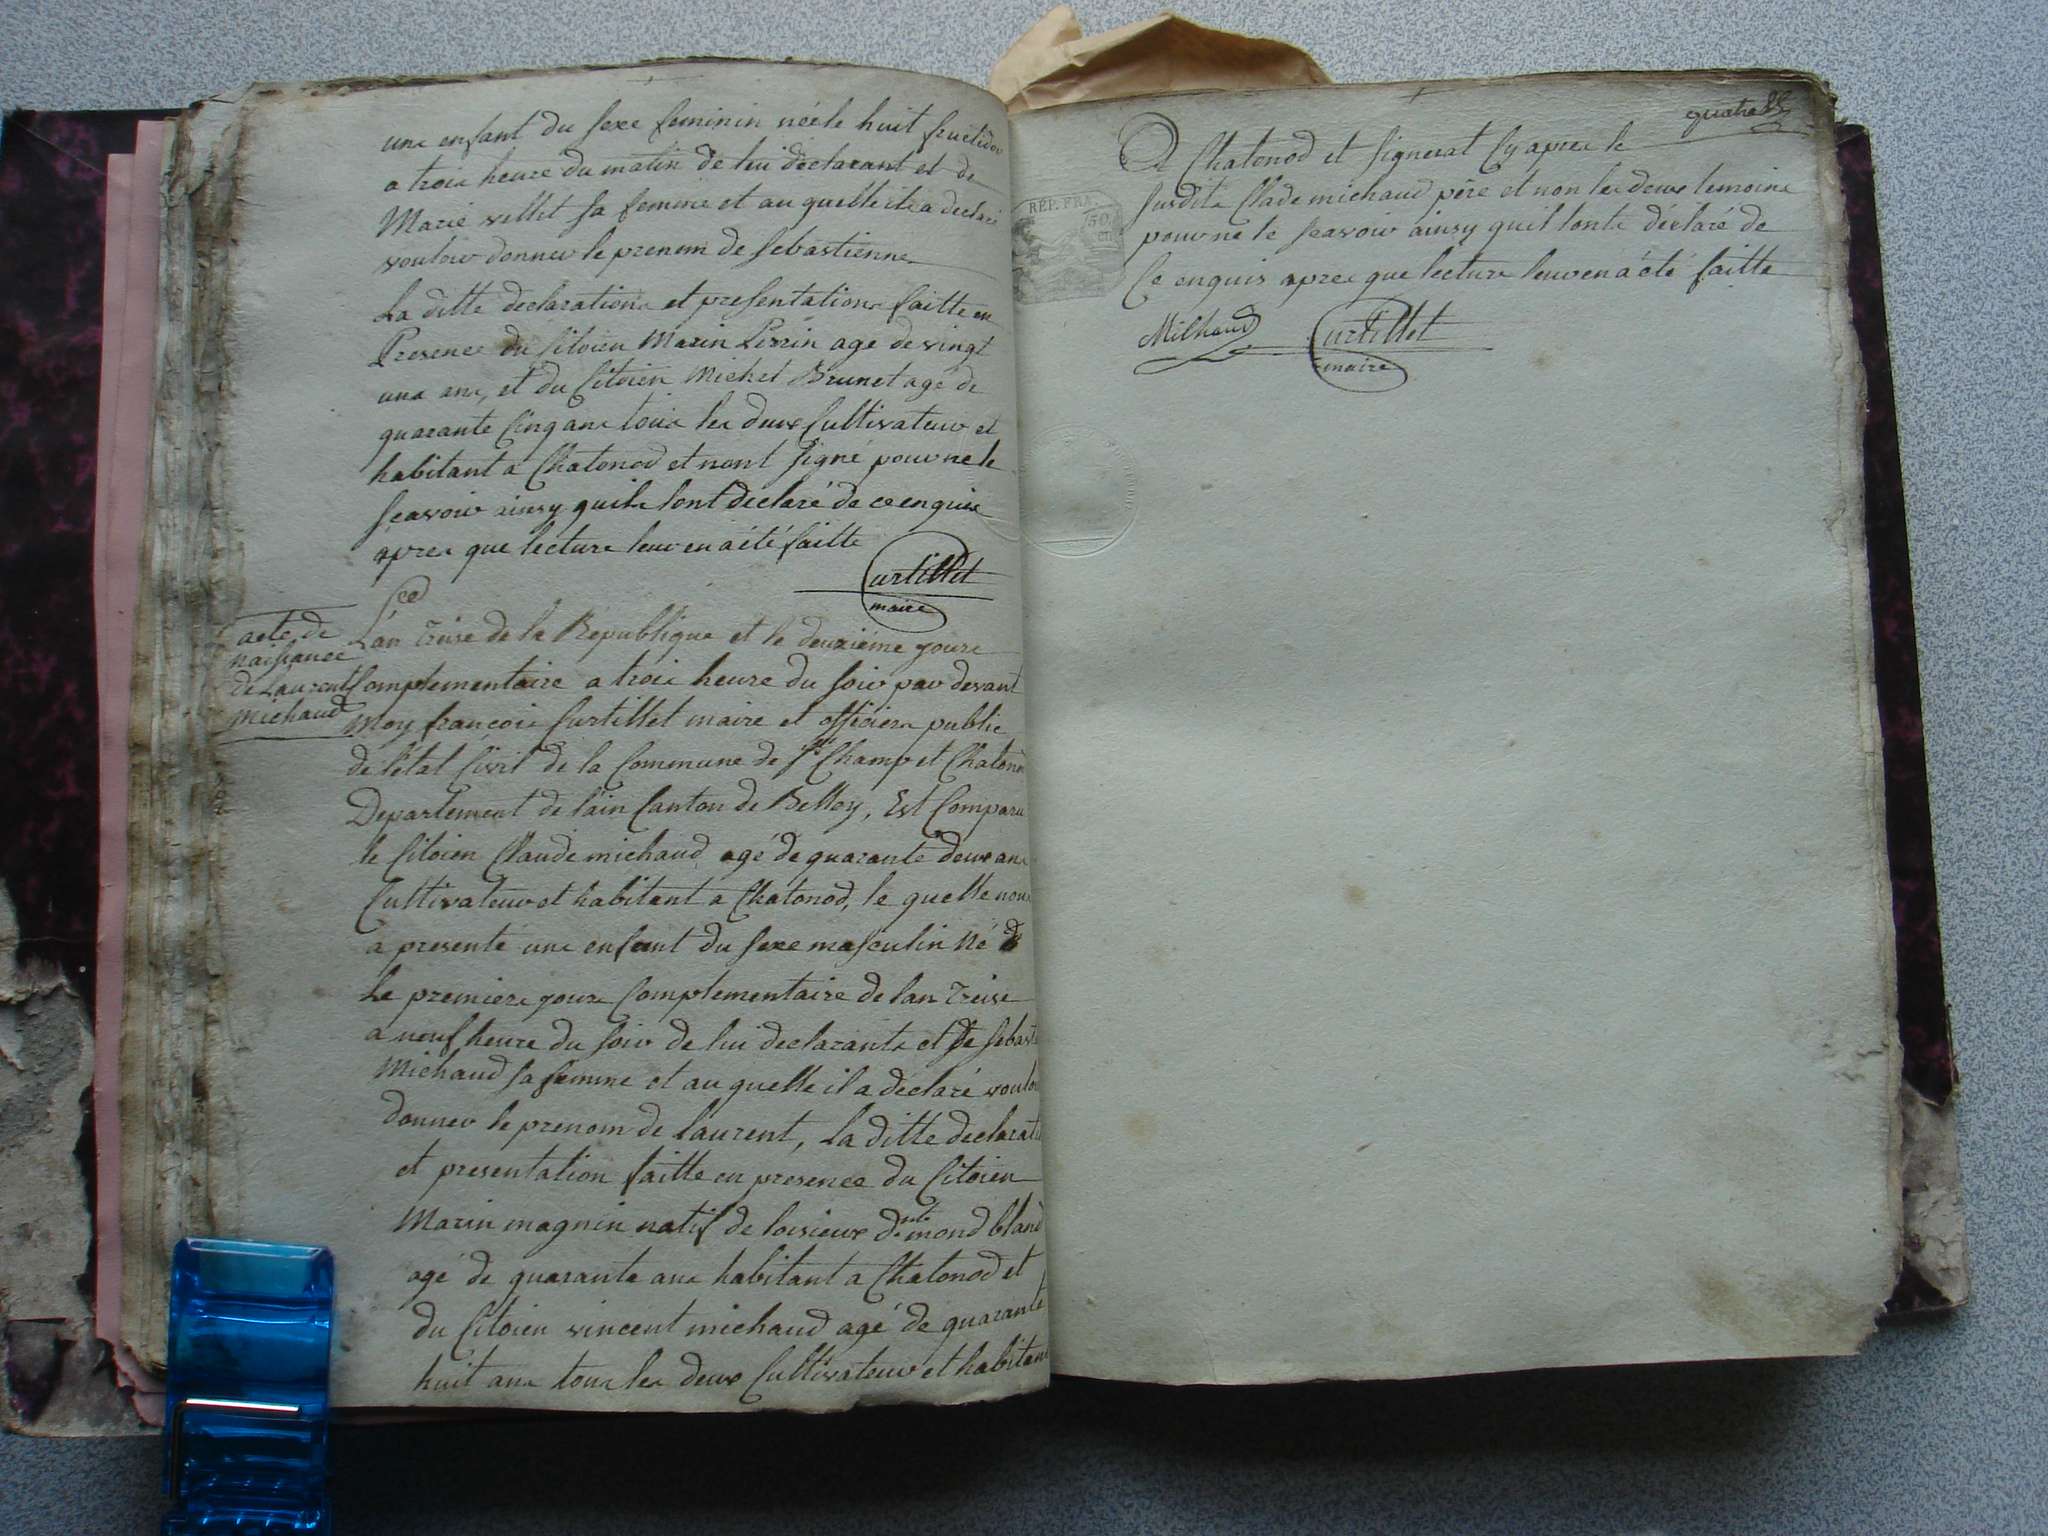 une enfant du sexe feminin née le huit fructidor
a trois heure du matin de lui déclarant et de
Marie vellet sa femme et au quelle ils a declaré
vouloir donner le prenom de sebastienne
La ditte declaration et presentation faitte en
Presence du Citoien Marin Perrin agé de vingt
un ans, et du Citoien Michel Brunet agé de
quarante Cinq ans tous les deux Cultivateur et
habitant a Chatonod et nont signé pour ne le
sçavoir ainsy quils lont declaré de ce enquis
apres que lecture leur en a été faitte
Curtillet
maire
acte de
naissance
de Laurent
Michaud
L'an treise de la République et le deuxiéme jours
Complementaire a trois heure du soir par devant
Moy françois Curtillet maire et officiers public
de l'état Civil de la Commune de St Champ et Chatonod
Departement de lain Canton de Belley, Est Comparu
le Citoien Claude michaud agé de quarante deux ans
Cultivateur et habitant a Chatonod, le quelle nous
a presenté une enfant du sexe masculin Né
Le premiers jours Complementaire de lan treise
a neuf heure du soir de lui declarants et de sebast
Michaud sa femme et au quelle il a déclaré voulo
donner le prenom de laurent, La ditte declarat
et presentation faitte en presence du Citoien
Marin magnin natif de loisieux Dmt mond bland
agé de quarante ans habitant a Chatonod et
du Citoien vincent michaud agé de quarante
huit ans tous les deux Cultivateur et habitant
quatre
A Chatonod et signerat Cy apres le
susdits Clade michaud père et non les deux temoins
pour ne le sçavoir ainsy quil lonts déclaré de
Ce enquis apres que lecture leur en a été faitte
REP. FRA.
50
Milhaud
Curtillet
maire